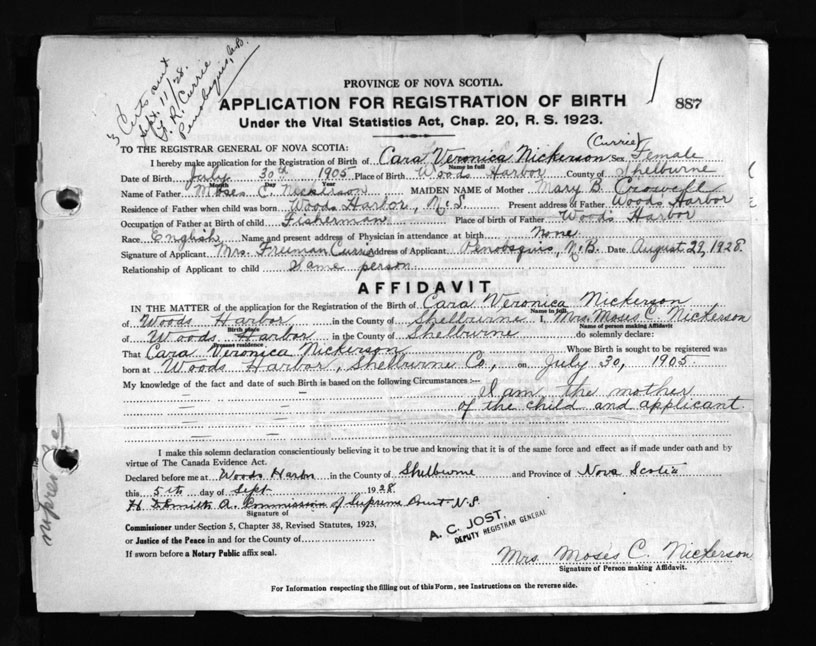 3 Certs sent
Sept. 11/28.
F. R. Currie
Penobsquis, N.B.
PROVINCE OF NOVA SCOTIA.
APPLICATION FOR REGISTRATION OF BIRTH
887
Under the Vital Statistics Act, Chap. 20, R. S. 1923.
TO THE REGISTRAR GENERAL OF NOVA SCOTIA:
(Currie)
I hereby make application for the Registration of Birth of Cara Veronica Nickerson Sex Female
Name in full
Date of Birth July 30th 1905 Place of Birth Woods Harbor County of Shelburne
Month Day Year
Name of Father Moses C. Nickerson MAIDEN NAME of Mother Mary B Crowell
Residence of Father when child was born Woods Harbor, N.S. Present address of Father Woods Harbor
Occupation of Father at Birth of child Fisherman Place of birth of Father Woods Harbor
Race English Name and present address of Physician in attendance at birth None
Signature of Applicant Mrs. Freeman Currie Address of Applicant Penobsquis, N.B. Date August 29, 1928.
Relationship of Applicant to child Same person
AFFIDAVIT
IN THE MATTER of the application for the Registration of the Birth of Cara Veronica Nickerson
Name in full
of Woods Harbor in the County of Shelburne I, Mrs. Moses C. Nickerson
Birth place Name of person making Affidavit
of Woods Harbor in the County of Shelburne do solemnly declare:
Present residence
That Cara Veronica Nickerson Whose Birth is sought to be registered was
born at Woods Harbor, Shelburne Co., on July 30, 1905.
My knowledge of the fact and date of such Birth is based on the following Circumstances :—
I am the mother
of the child and applicant.
I make this solemn declaration conscientiously believing it to be true and knowing that it is of the same force and effect as if made under oath and by
virtue of The Canada Evidence Act.
Declared before me at Woods Harbor in the County of Shelburne and Province of Nova Scotia
this 5th day of Sept 1928
A. Commission of Supreme Court N.S.
Signature of
Commissioner under Section 5, Chapter 38, Revised Statutes, 1923,
or Justice of the Peace in and for the County of
If sworn before a Notary Public affix seal.
A. C. JOST.
DEPUTY REGISTRAR GENERAL
Mrs. Moses C. Nickerson
Signature of Person making Affidavit.
For Information respecting the filling out of this Form, see Instructions on the reverse side.